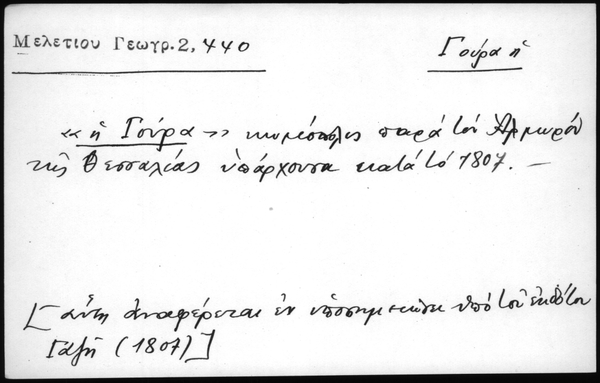 Μελετίου Γεωγρ. 2, 440
Γούρα ἡ
«ἡ Γούρα» κωμόπολις παρά τόν Ἁλμυρόν
τῆς Θεσσαλίας ὑπάρχουσα κατά τό 1807. –
[αὕτη ἀναφέρεται ἐν ὑποσημειώσει ὑπό τοῦ ἐκδότου
Γαζῆ (1807)]